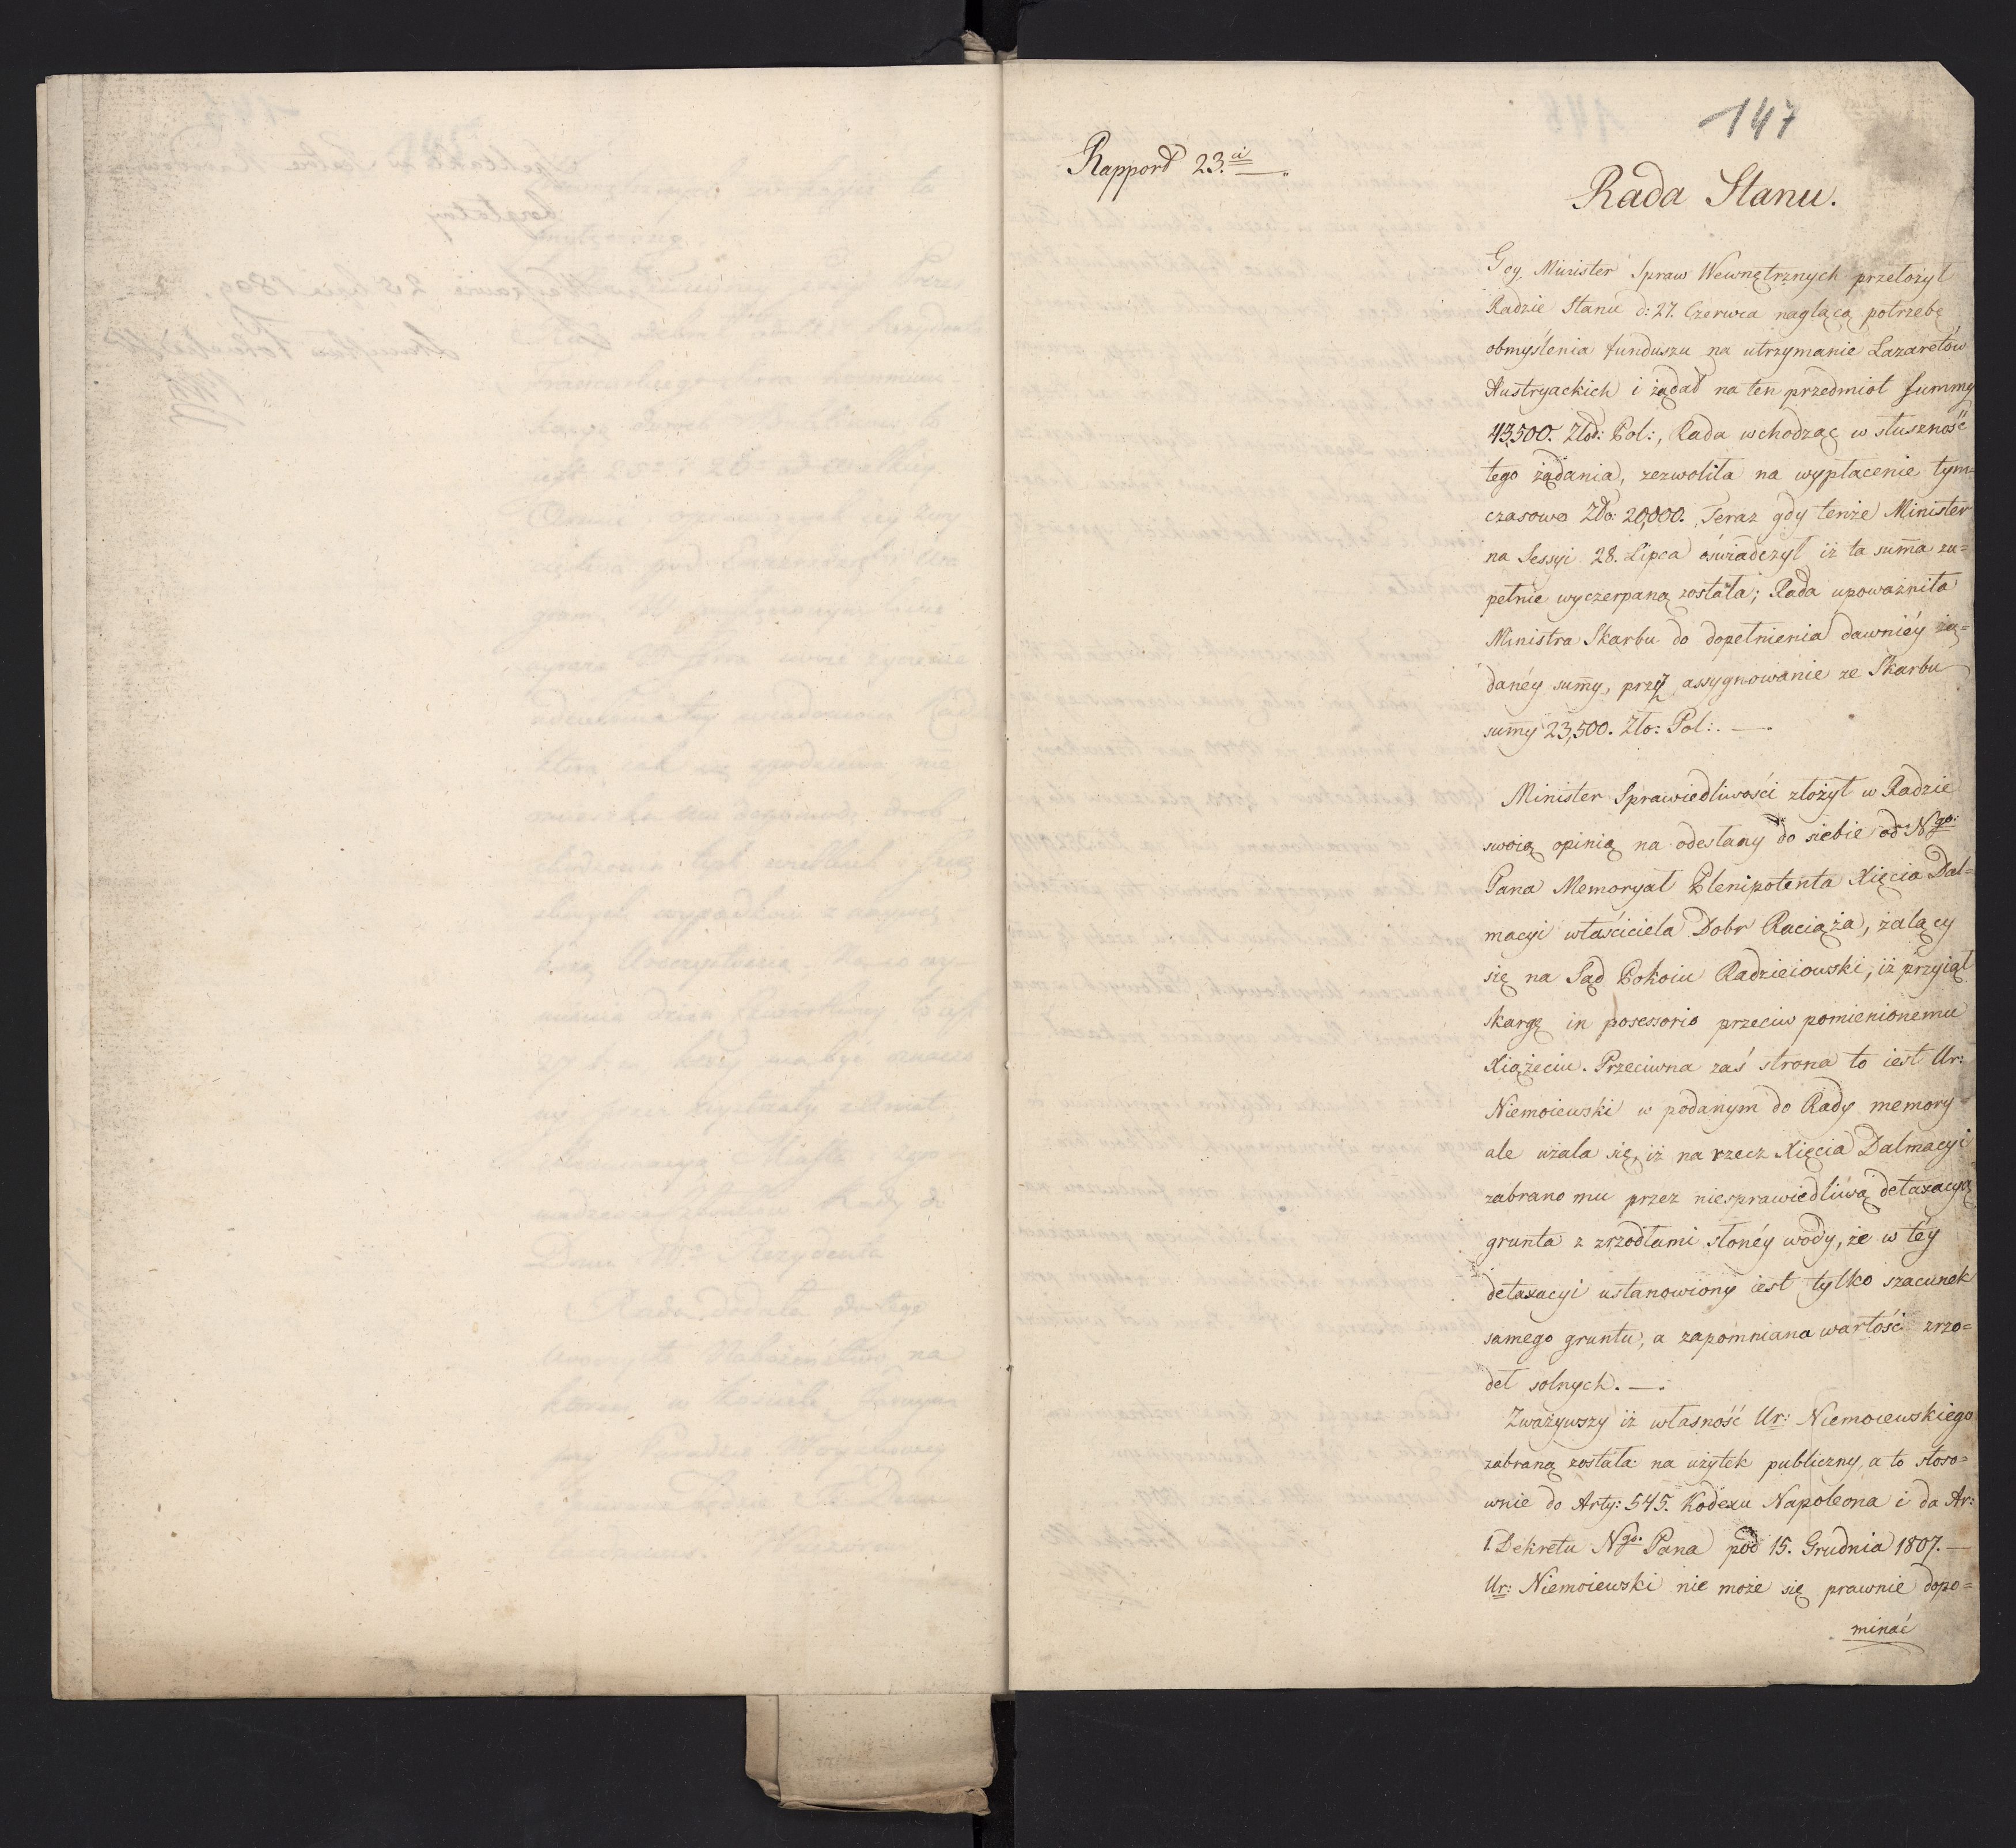 147
Rapport 23.ci
Rada Stanu.
Gdy Minister Spraw Wewnętrznych przełożył
Radzie Stanu d: 27. Czerwca naglącą potrzebę
obmyślenia funduszu na utrzymanie Lazaretów
Austryackich i żądał na ten przedmiot summy
43,500. Złot: Pol:, Rada wchodząc w słuszność
tego żądania, zezwoliła na wypłacenie tym=
czasowo Zło: 20,000. Teraz gdy tenże Minister
na Sessyi 28. Lipca oświadczył iż ta sum̄a zu=
pełnie wyczerpaną została; Rada upoważniła
Ministra Skarbu do dopełnienia dawniéy żą=
danéy sum̄y, przez assygnowanie ze Skarbu
sum̄y 23,500. Zło: Pol:. —.
Minister Sprawiedliwości złożył w Radzie
swoią opinią na odesłany do siebie od Ngo:
Pana Memoryał Plenipotenta Xięcia Dal=
macyi właściciela Dobr Raciąża, żalący
się na Sąd Pokoiu Radzieiowski, iż przyiął
skargę in posessorio przeciw pomienionemu
Xiążęciu. Przeciwna zaś strona to iest Ur:
Niemoiewski w podanym do Rady memory=
ale użala się, iż na rzecz Xięcia Dalmacyi
zabrano mu przez niesprawiedliwą detaxacyą
grunta z zrzodłami słonéy wody, że w téy
detaxacyi ustanowiony iest tylko szacunek
samego gruntu, a zapomniana wartość zrzo=
deł solnych. —.
Zważywszy iż własność Ur: Niemoiewskiego
zabraną została na użytek publiczny, a to stoso=
wnie do Arty: 545. Kodexu Napoleona i do Ar:
1. Dekretu Ngo. Pana pod 15. Grudnia 1807. —
Ur: Niemoiewski nie może się prawnie dopo=
minać